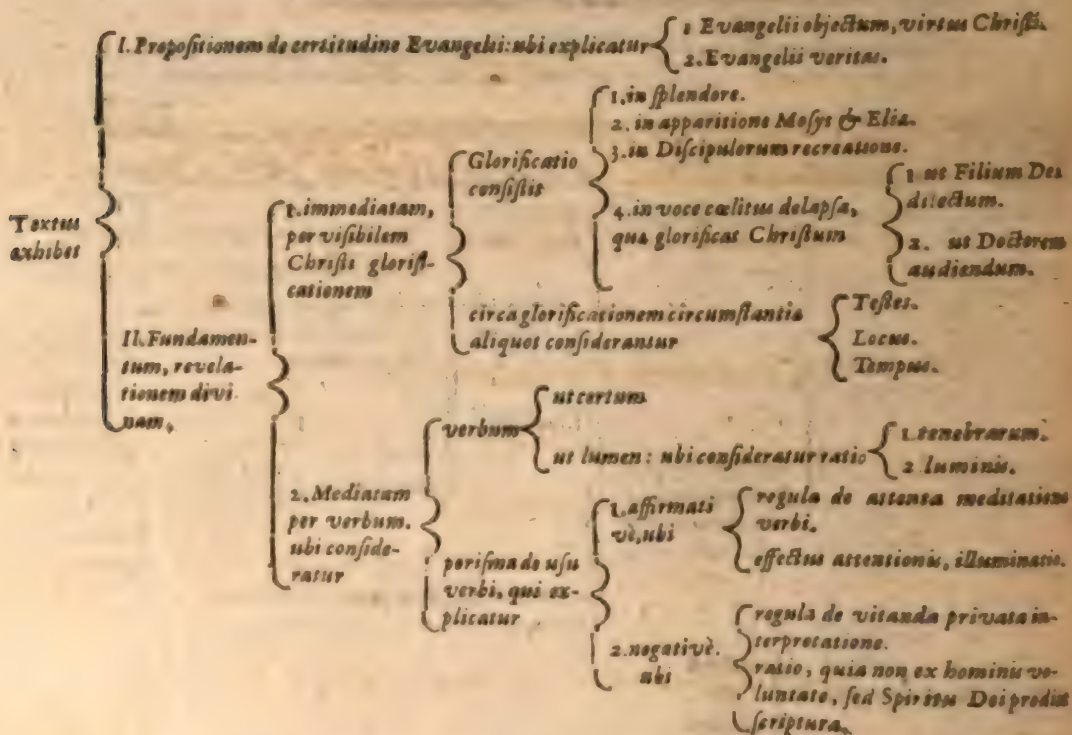 I. Propositionem de certitudine Evangelii: ubi explicatur
1 Evangelii objectum, virtus Christi.
2. Evangelii veritas.
Textus
exhibet
II. Fundamen-
tum, revela-
tionem divi
nam.
1. immediatam,
per visibilem
Christi glorifi-
cationem
Glorificatio
consistit
1. in splendore.
2. in apparitione Mosys & Elia.
3. in Discipulorum recreatione.
4. in voce cœlitus delapsa,
qua glorificat Christum
1 ut Filium Dei
dilectum.
2. ut Doctorem
audiendum.
circa glorificationem circumstantia
aliquot considerantur
Testes.
Locus.
Tempus.
2. Mediatam
per verbum.
ubi conside-
ratur
verbum
ut certum
ut lumen: ubi consideratur ratio
1. tenebrarum.
2 luminis.
porisma de usu
verbi, qui ex-
plicatur
1. affirmati
vè, ubi
regula de attenta meditatione
verbi.
effectus attentionis, illuminatio.
2. negativè.
ubi
regula de vitanda privata in-
terpretatione.
ratio, quia non ex hominis vo-
luntate, sed Spiritus Dei prodiit
scriptura.